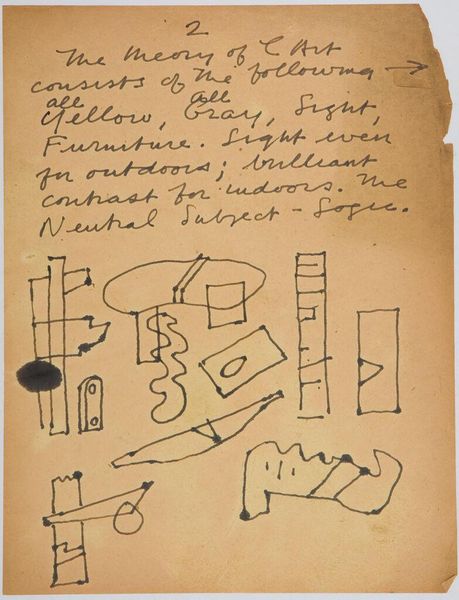 2
The Theory of Art
consists of the following →
all all
Yellow, Gray, Light,
Furniture. Light even
for outdoors; brilliant
contrast for indoors. The
Neutral Subject - Logic.